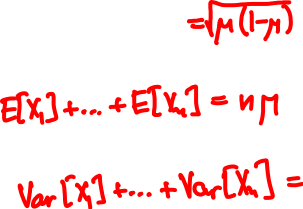 =√μ(1-μ)
E[X₁]+...+E[Xₙ] = nμ
Var[X₁]+...+Var[Xₙ] =